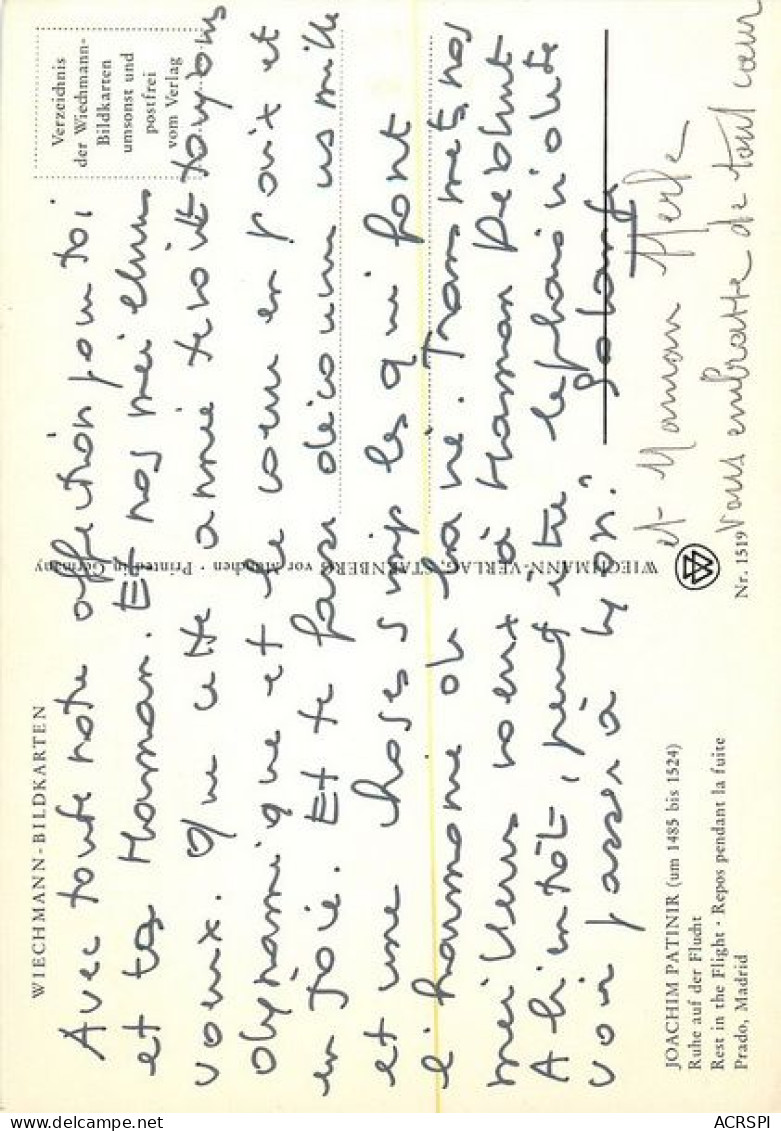 WIECHMANN-BILDKARTEN
Verzeichnis
der Wiechmann-
Bildkarten
umsonst und
postfrei
vom Verlag
Avec toute notre affection pour toi
et ta Maman. Et nos meilleurs
voeux. Que cette année te voit toujours
dynamique et le coeur en paix et
en Joie. Et te fasse découvrir les mille
et une choses simples qui font
l'harmonie de la vie. Transmets nos
meilleurs voeux à Maman
A bientôt, peut être
voir passer à Lyon."
et Maman
Vous embrasse de tout coeur
WIECHMANN-VERLAG, STARNBERG vor München · Printed in Germany
JOACHIM PATINIR (um 1485 bis 1524)
Ruhe auf der Flucht
Rest in the Flight · Repos pendant la fuite
Prado, Madrid
Nr. 1519
ACRSPI